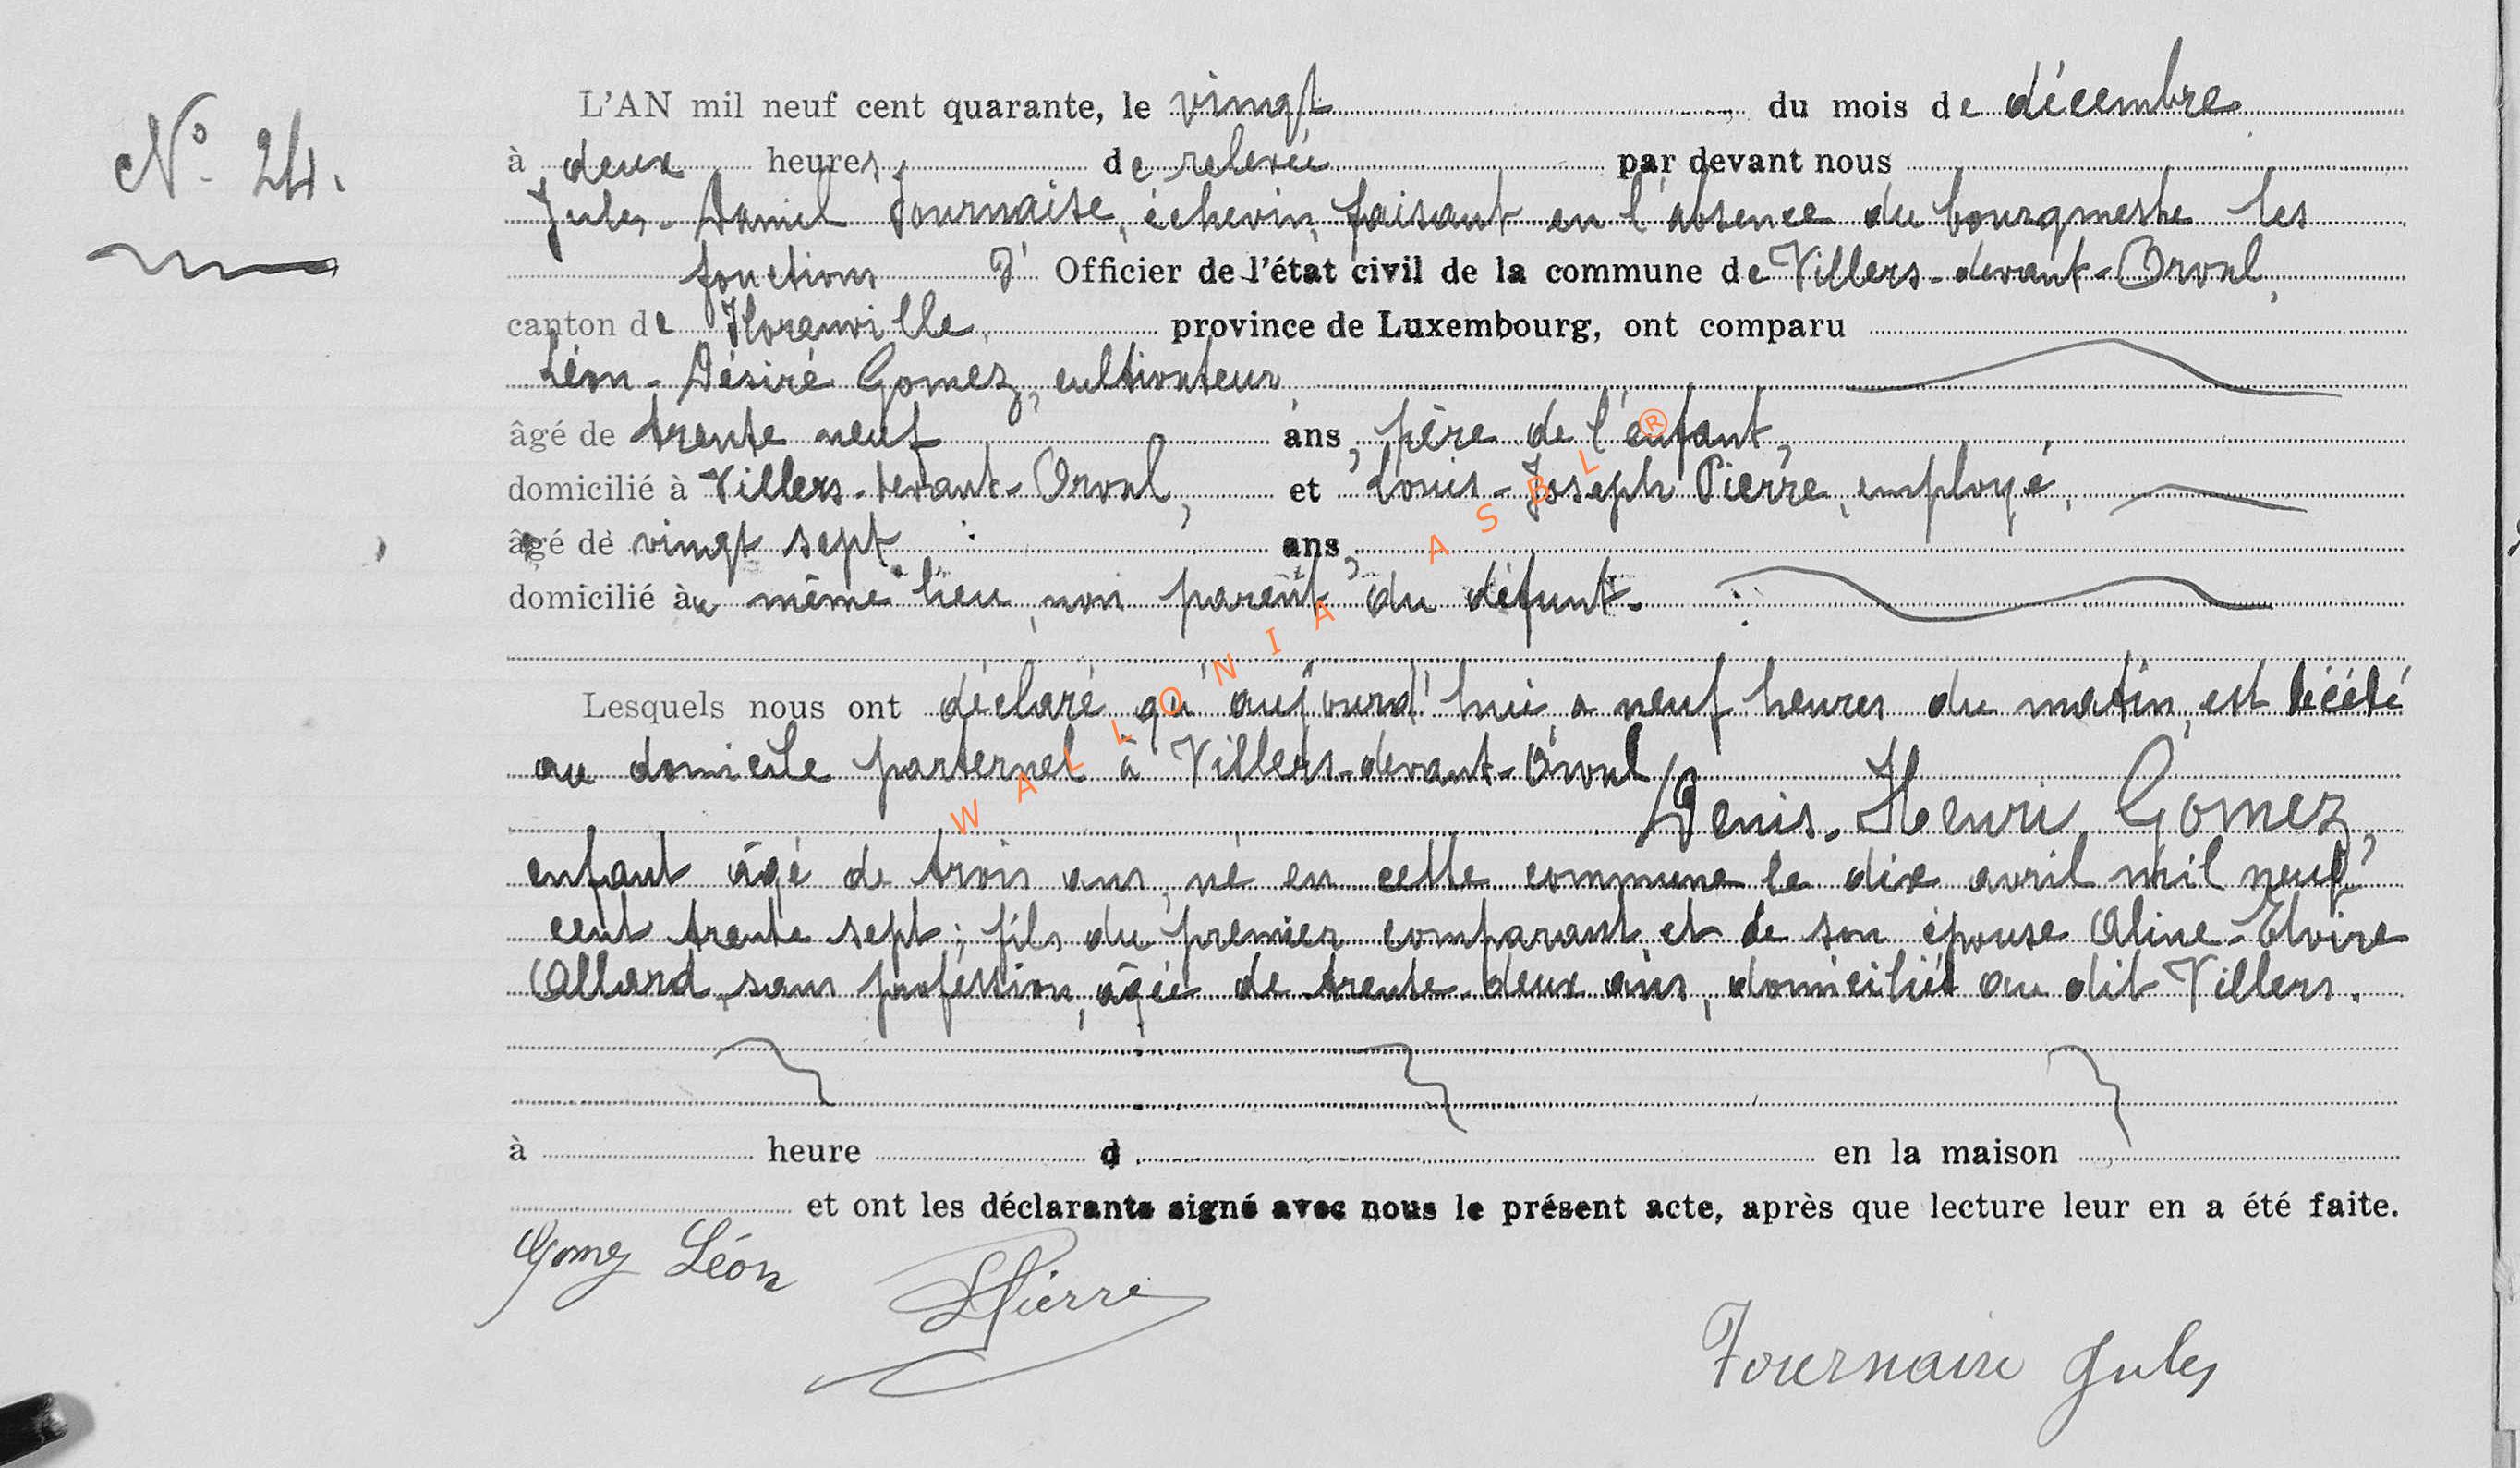 N° 24.
L'AN mil neuf cent quarante, le vingt du mois de décembre
à deux heures de relevée par devant nous
Jules-Daniel Fournaise, échevin, faisant en l'absence du bourgmestre les
fonctions d'Officier de l'état civil de la commune de Villers-devant-Orval,
canton de Florenville, province de Luxembourg, ont comparu
Léon-Désiré Gomez, cultivateur,
âgé de trente neuf ans, père de l'enfant,
domicilié à Villers-devant-Orval, et Louis-Joseph Pierre, employé,
âgé de vingt sept ans,
domicilié au même lieu, non parent du défunt.
Lesquels nous ont déclaré qu'aujourd'hui, à neuf heures du matin, est décédé
au domicile parternel à Villers-devant-Orval
Denis-Henri Gomez,
enfant âgé de trois ans, né en cette commune le dix avril mil neuf
cent trente sept; fils du premier comparant et de son épouse Aline-Elvire
Allard, sans profession, âgée de trente-deux ans, domiciliés au dit Villers.
à heure d en la maison
et ont les déclarants signé avec nous le présent acte, après que lecture leur en a été faite.
Gomez Léon LPierre
Fournaise Jules
WALLONIA ASBL ®